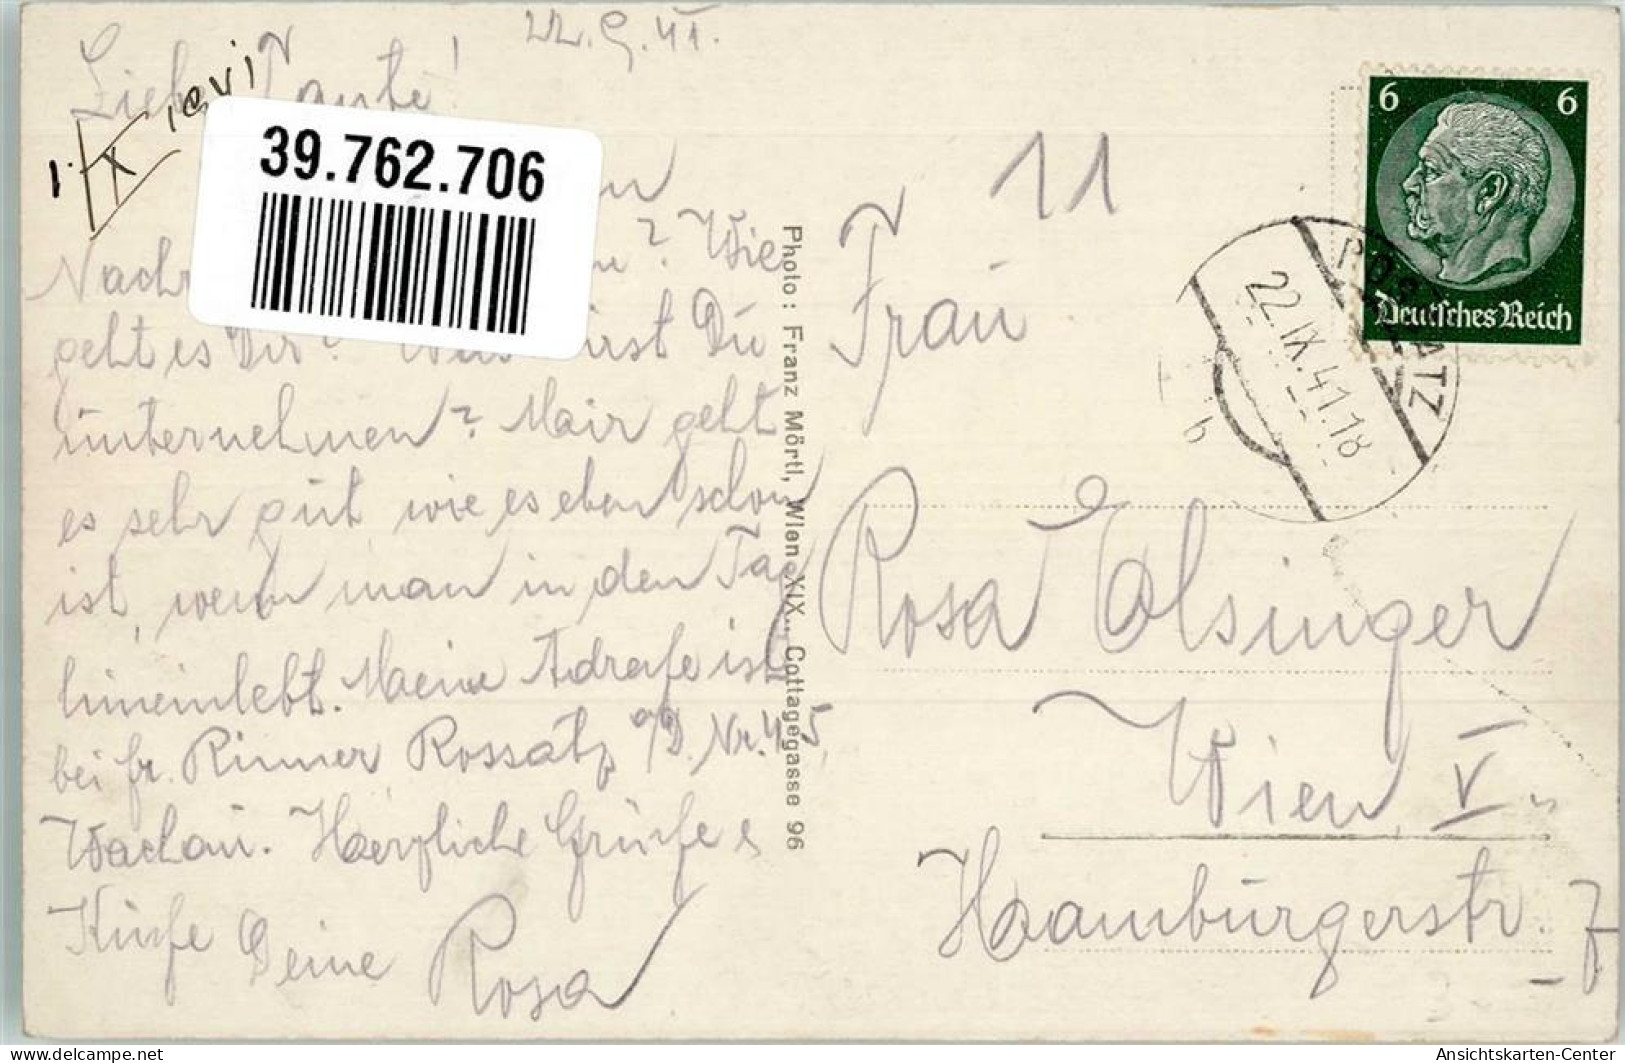 22. 9. 41.
Liebe Tante!
39.762.706
Nach
? Wie
geht es Dir? Du
unternehmen? Mair geht
es sehr gut, wie es eben schon
ist, wenn man in den Tag
hineinlebt. Meine Adraße ist
bei fr. Rinner Rossatz a/D. Nr. 45,
Wachau. Herzliche Grüße &
Küße Deine Rosa
Photo: Franz Mörtl, Wien XIX., Cottagegasse 96
11
6 6
Deutsches Reich
22.IX.41.18
b
Frau
Rosa Elsinger
Wien V.
Hamburgerstr. 7
www.oldthing.de
Ansichtskarten-Center